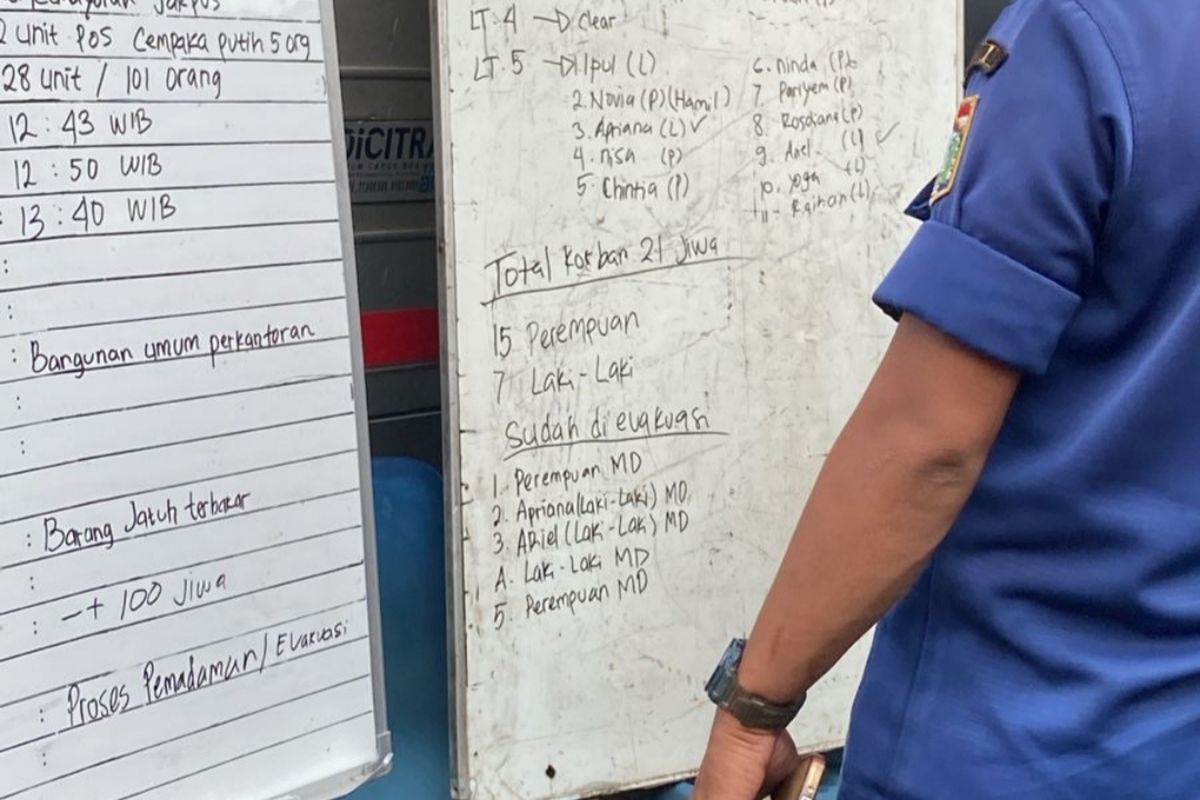 2 unit Pos Cempaka putih 5 org
28 unit / 101 orang
12 : 43 WIB
12 : 50 WIB
: 13 : 40 WIB
:
:
: Bangunan umum perkantoran
:
:
: Barang Jatuh terbakar
:
: -+ 100 Jiwa
: Proses Pemadaman / Evakuasi
:
DiCITRA
LT. 4 → Clear
LT. 5 → 1. Ipul (L)
2. Novia (P) (Hamil)
3. Apriana (L) ✓
4. nisa (P)
5. Chintia (P)
6. ninda (P)
7. Pariyem (P)
8. Rosdiana (P)
9. Ariel. (L) ✓
10. Yoga (L)
11 - Raihan (L)
Total Korban 21 Jiwa
15 Perempuan
7 Laki - Laki
Sudah di evakuasi
1. Perempuan MD
2. Apriana (Laki-Laki) MD
3. ARiel (Laki - Laki) MD
4. Laki - Laki MD
5. Perempuan MD